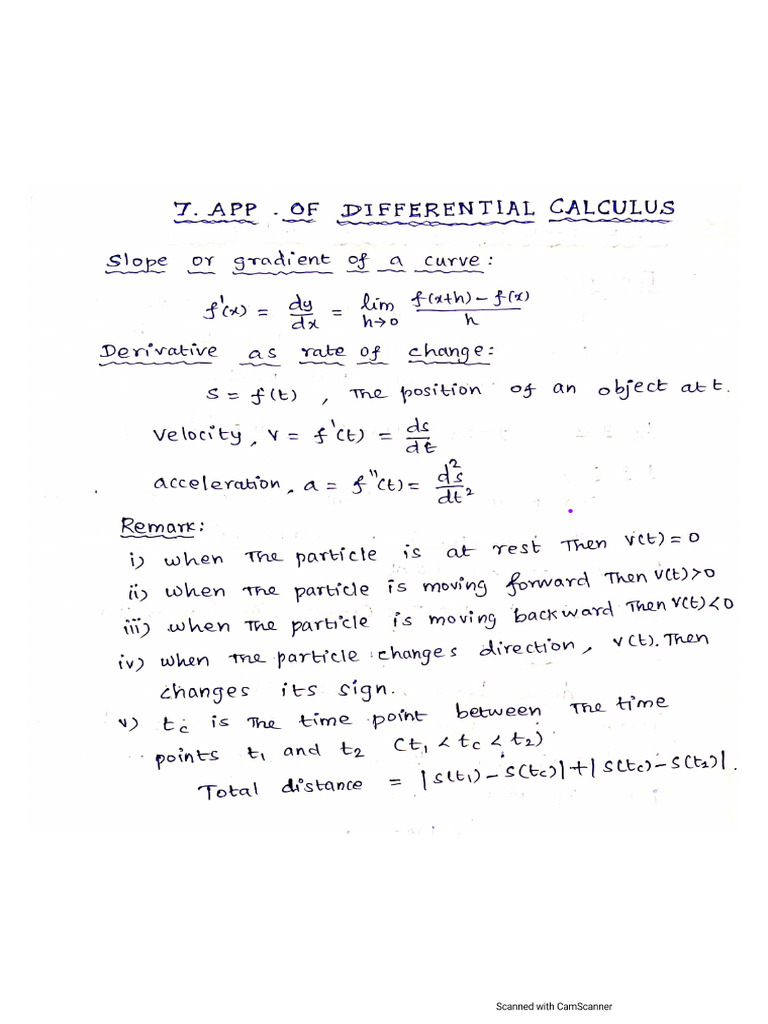 7. APP. OF DIFFERENTIAL CALCULUS
Slope or gradient of a curve:
f'(x) = dy/dx = lim h→0 f(x+h) - f(x) / h
Derivative as rate of change:
S = f(t), The position of an object at t.
Velocity, V = f'(t) = ds/dt
acceleration, a = f''(t) = d²s/dt²
Remark:
i) when The particle is at rest Then V(t) = 0
ii) when The particle is moving forward Then V(t) > 0
iii) when The particle is moving backward Then V(t) < 0
iv) when The particle changes direction, V(t). Then
changes its sign.
v) tc is The time point between The time
points t₁ and t₂ (t₁ < tc < t₂)
Total distance = |S(t₁) - S(tc)| + |S(tc) - S(t₂)|.
Scanned with CamScanner